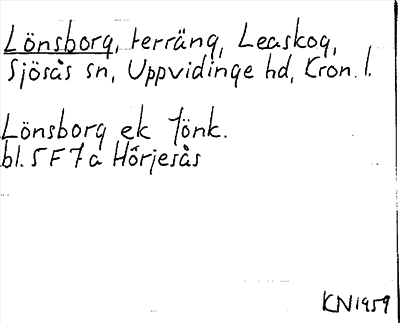 Lönsborg, terräng, Leaskog,
Sjösås sn, Uppvidinge hd, Kron. l.
Lönsborg ek Jönk.
bl. 5 F 7 a Hörjesås
KN1959